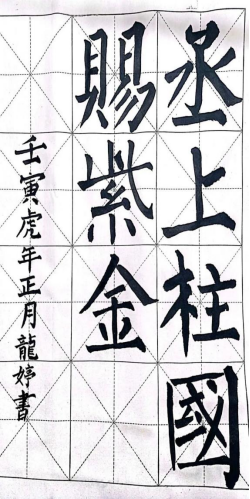 丞上柱國
賜紫金
壬寅虎年正月龍婷書